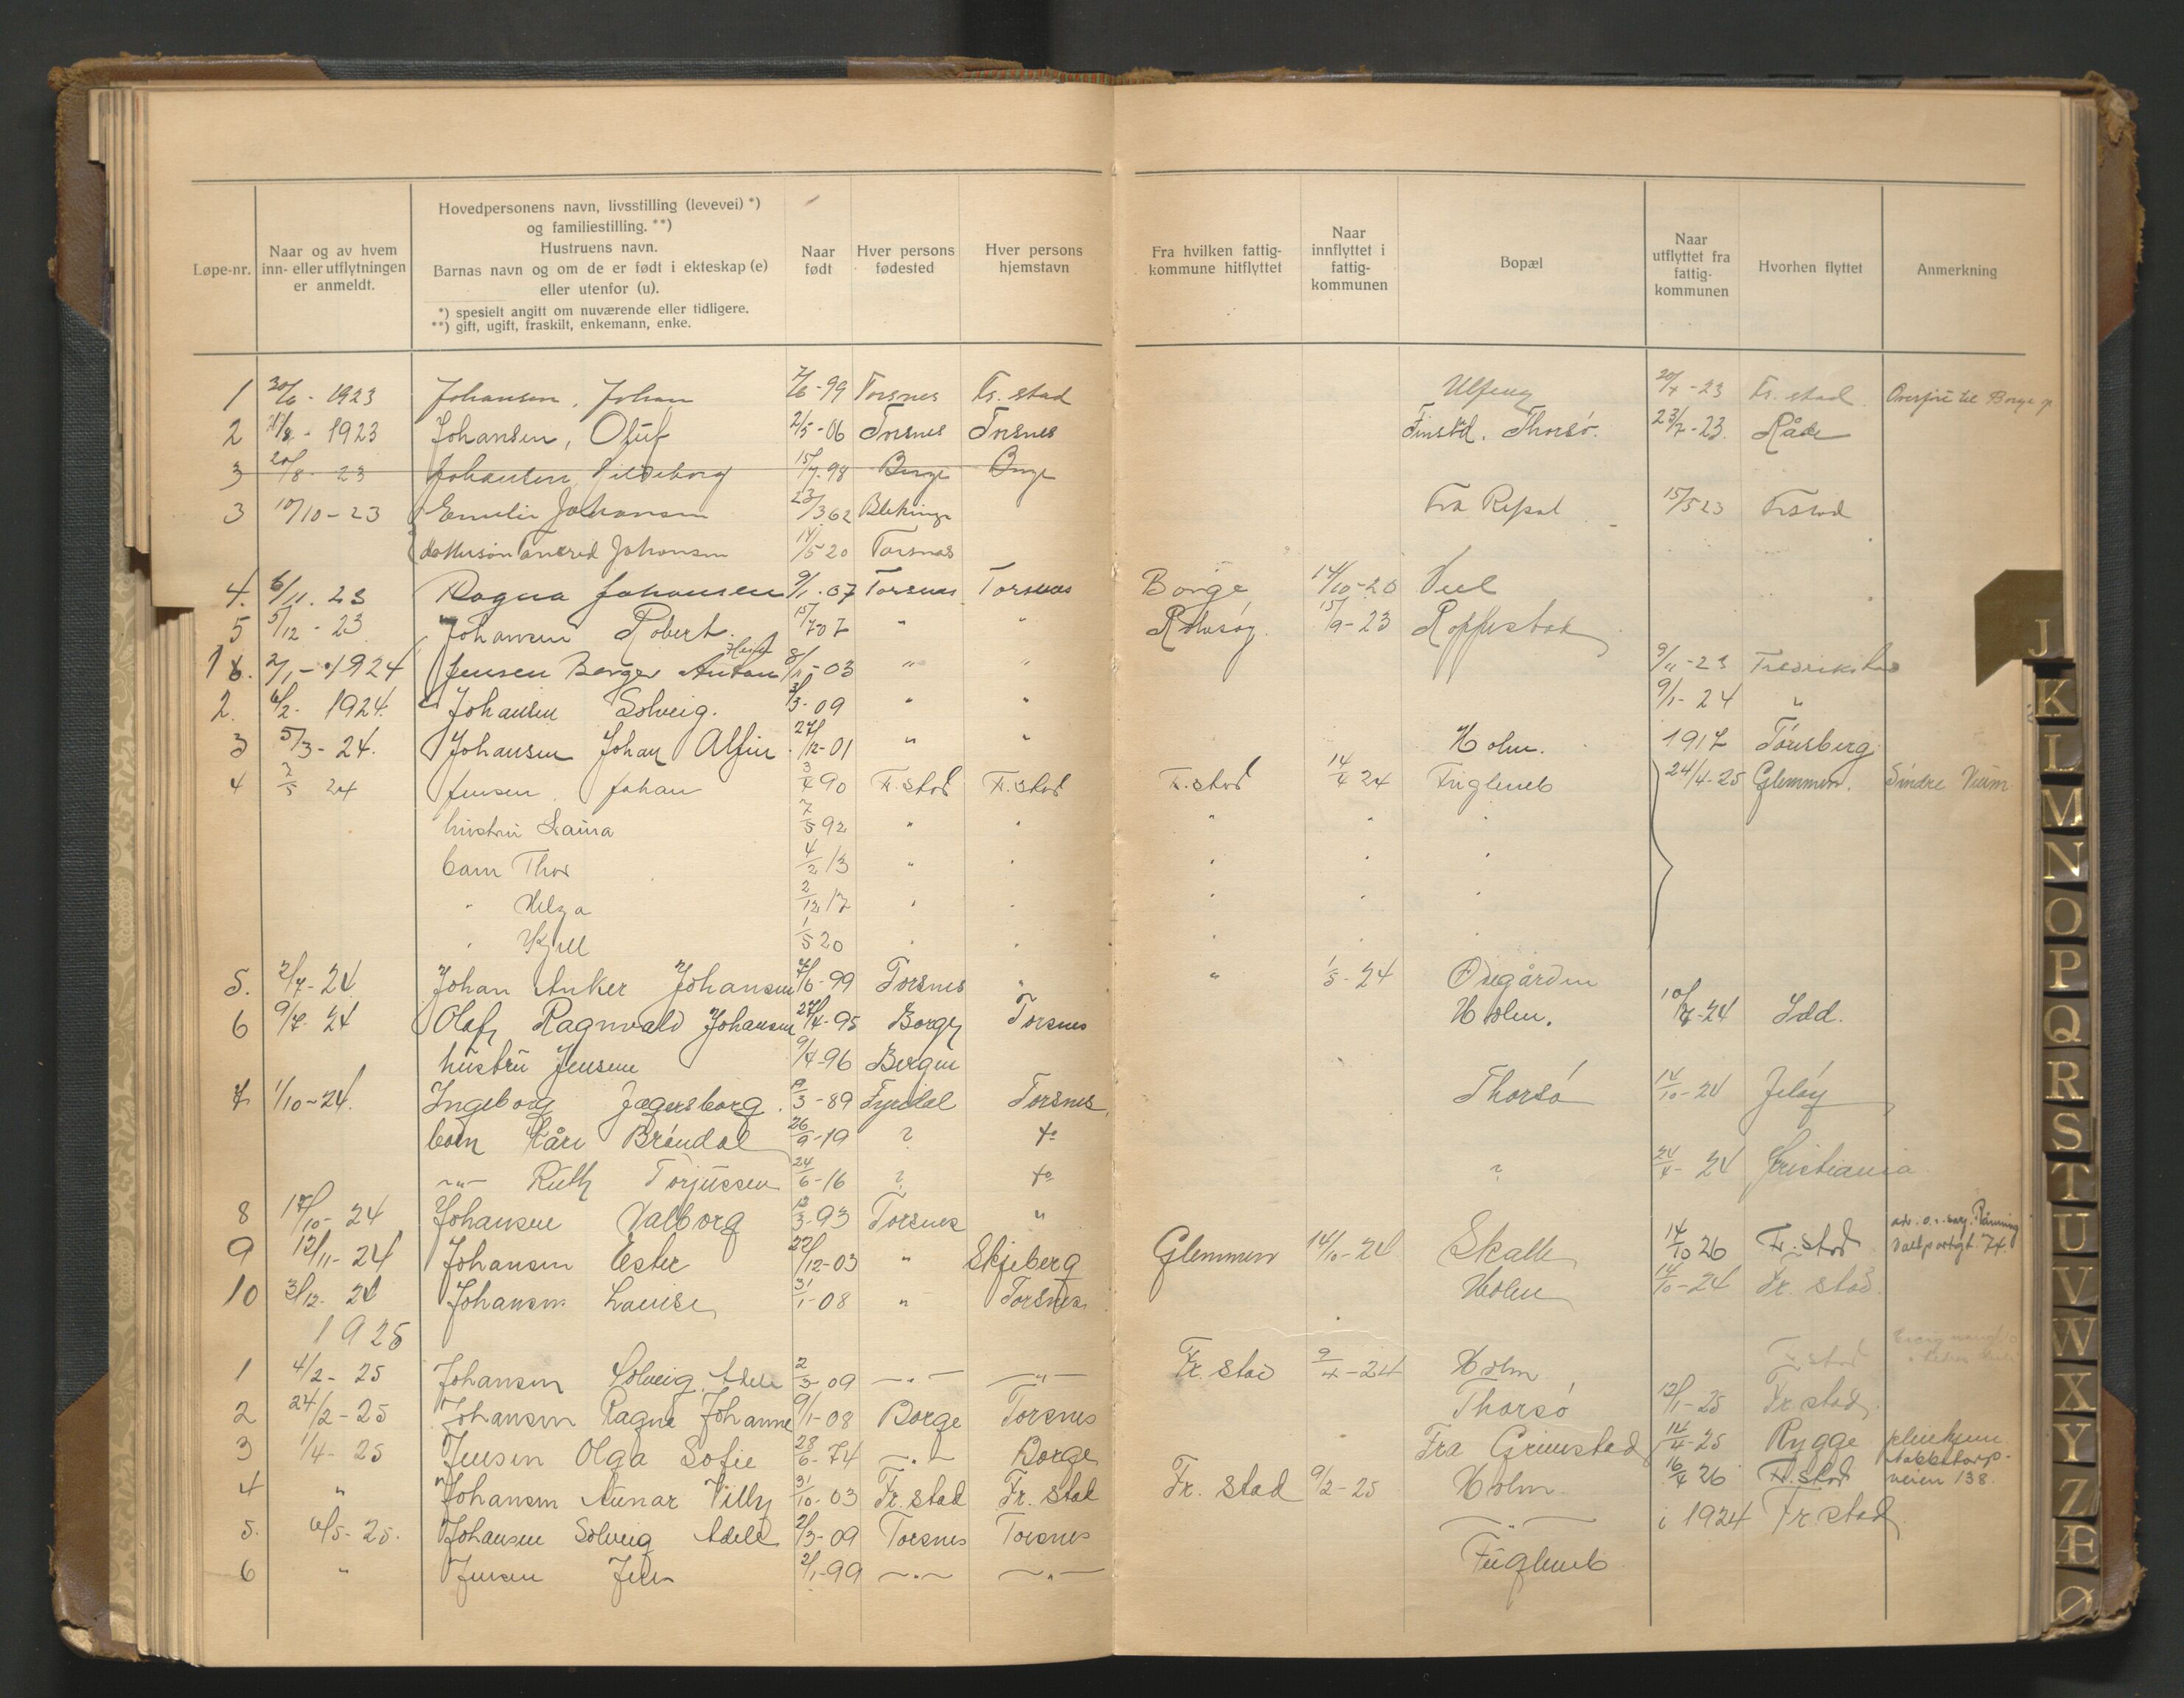 Løpe-nr. Naar og av hvem inn- eller utflytningen er anmeldt. Hovedpersonens navn, livsstilling (levevei) *) og familiestilling. **) Hustruens navn. Barnas navn og om de er født i ekteskap (e) eller utenfor (u). *) spesielt angitt om nuværende eller tidligere. **) gift, ugift, fraskilt, enkemann, enke. Naar født Hver persons fødested Hver persons hjemstavn Fra hvilken fattig-kommune hitflyttet Naar innflyttet i fattig-kommunen Bopæl Naar utflyttet fra fattig-kommunen Hvorhen flyttet Anmerkning
1 30/6 - 1923 Johansen, Johan 7/6-99 Torsnes Fr. stad 20/7-23 Fr. stad Overført til Borge
2 1923 Johansen, Oluf 2/5-06 Torsnes Torsnes Thorsø. 23/7-23. Råde
3 20/8 - 23 Johansen 15/7-98 Borge Borge
3 10/10-23 Emelie Johansen 23/3 62 Blekinge 15/5 23 Fr.stad
dattersøn Tancred Johansen 14/5 20 Torsnæs
4. 6/11. 23 Ragna Johansen 9/1.07 Torsnæs Torsnæs Borge 14/10-20 Viel
5 5/12 - 23 Johansen Robert. 15/7 07 " " Rolvsøy. 15/9-23
1 6. 2/1 - 1924 Jensen Berger Anton 8/11-03 " " 9/11-23 Fredrikstad
2. 6/2- 1924. Johansen Solveig. 3/3-09 " " 9/1-24 "
3 5/3-24. Johansen Johan Alfin 27/12-01 " " Holm. 1917 Tønsberg
4 2/5 24 Jensen, Johan 3/4 90 F.stad F.stad F.stad 14/4 24 Fugleneb 24/4-25 Glemmen. Søndre
hustru Laura 7/5 92 " " " " "
barn Thor 4/2 13 " " " " "
" Helga 2/12 17 " " " " "
" Kjell 1/5 20 " " " "
5. 2/7-24 Johan Anker Johansen 7/6-99 Torsnes " " 1/5-24 Ødegården
6 9/7-24 Olaf Ragnvald Johansen 27/4-95 Borge Torsnes Holm. 10/7-24 Idd.
hustru Jensine 9/4-96 Bergen
7 1/10-24. Ingeborg Jægersborg. 19/3-89 Fyrdal Torsnes. Thorsø 14/10-24 Jeløy
barn Kåre Brendal 26/9-19 ? do
-"- Ruth Torjussen 24/6-16 ? do " 24/4-24 Kristiania
8 17/10-24 Johansen Valborg 12/3-93 Torsnes "
9 12/11-24 Johansen Ester 22/12-03 " Skjeberg Glemmen 14/10-24 Skalle 14/10 26 F.stad 74.
10 3/12-24 Johansen Louise 31/1-08 " Torsnes Holm 14/10-24 Fr. stad.
1925
1 4/2-25 Johansen Solveig Adele 2/3-09 -"- -"- Fr. stad 9/4-24 Holm F.stad
2 24/2-25 Johansen Ragna Johanne 9/1-08 Borge Torsnes Thorsø 12/1-25 Fr. stad.
3 1/4-25 Jensen Olga Sofie 28/6-74 -"- Borge Fra Grimstad 14/4-25 Rygge pleiehjem
4 " Johansen Willy 31/10-03 Fr. stad Fr. stad Fr. stad 9/2-25 Holm. 16/4 26 F.stad veien 138.
5. 6/5-25. Johansen Solveig Adele 2/3-09 Torsnes Torsnes -"- i 1924 Fr.stad
6 " Jensen 2/1-99 -"- -"- Fugleneb
J
K
L
M
N
O
P
Q
R
S
T
U
V
W
X
Y
Z
Æ
Ø